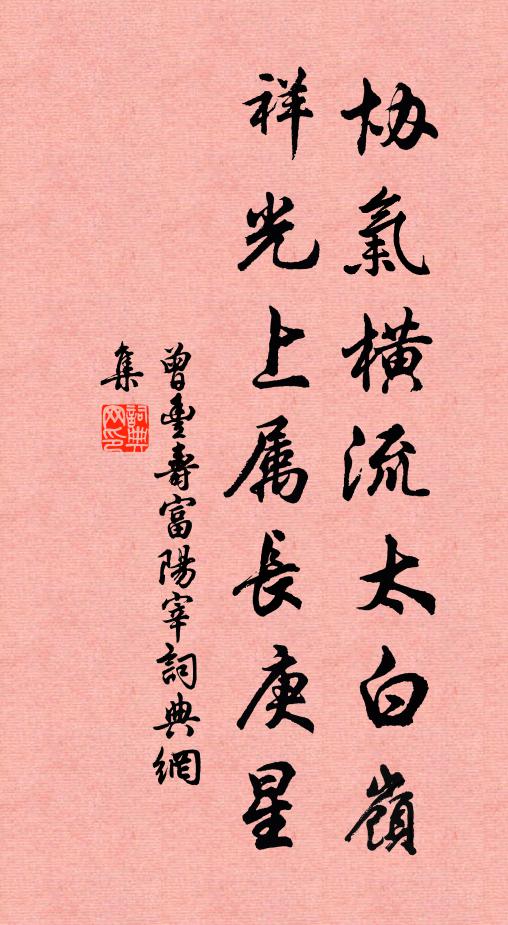 协氣橫流太白嶺
祥光上属長庚星
曾豐壽富陽宰詞典網
集
詞典
网印